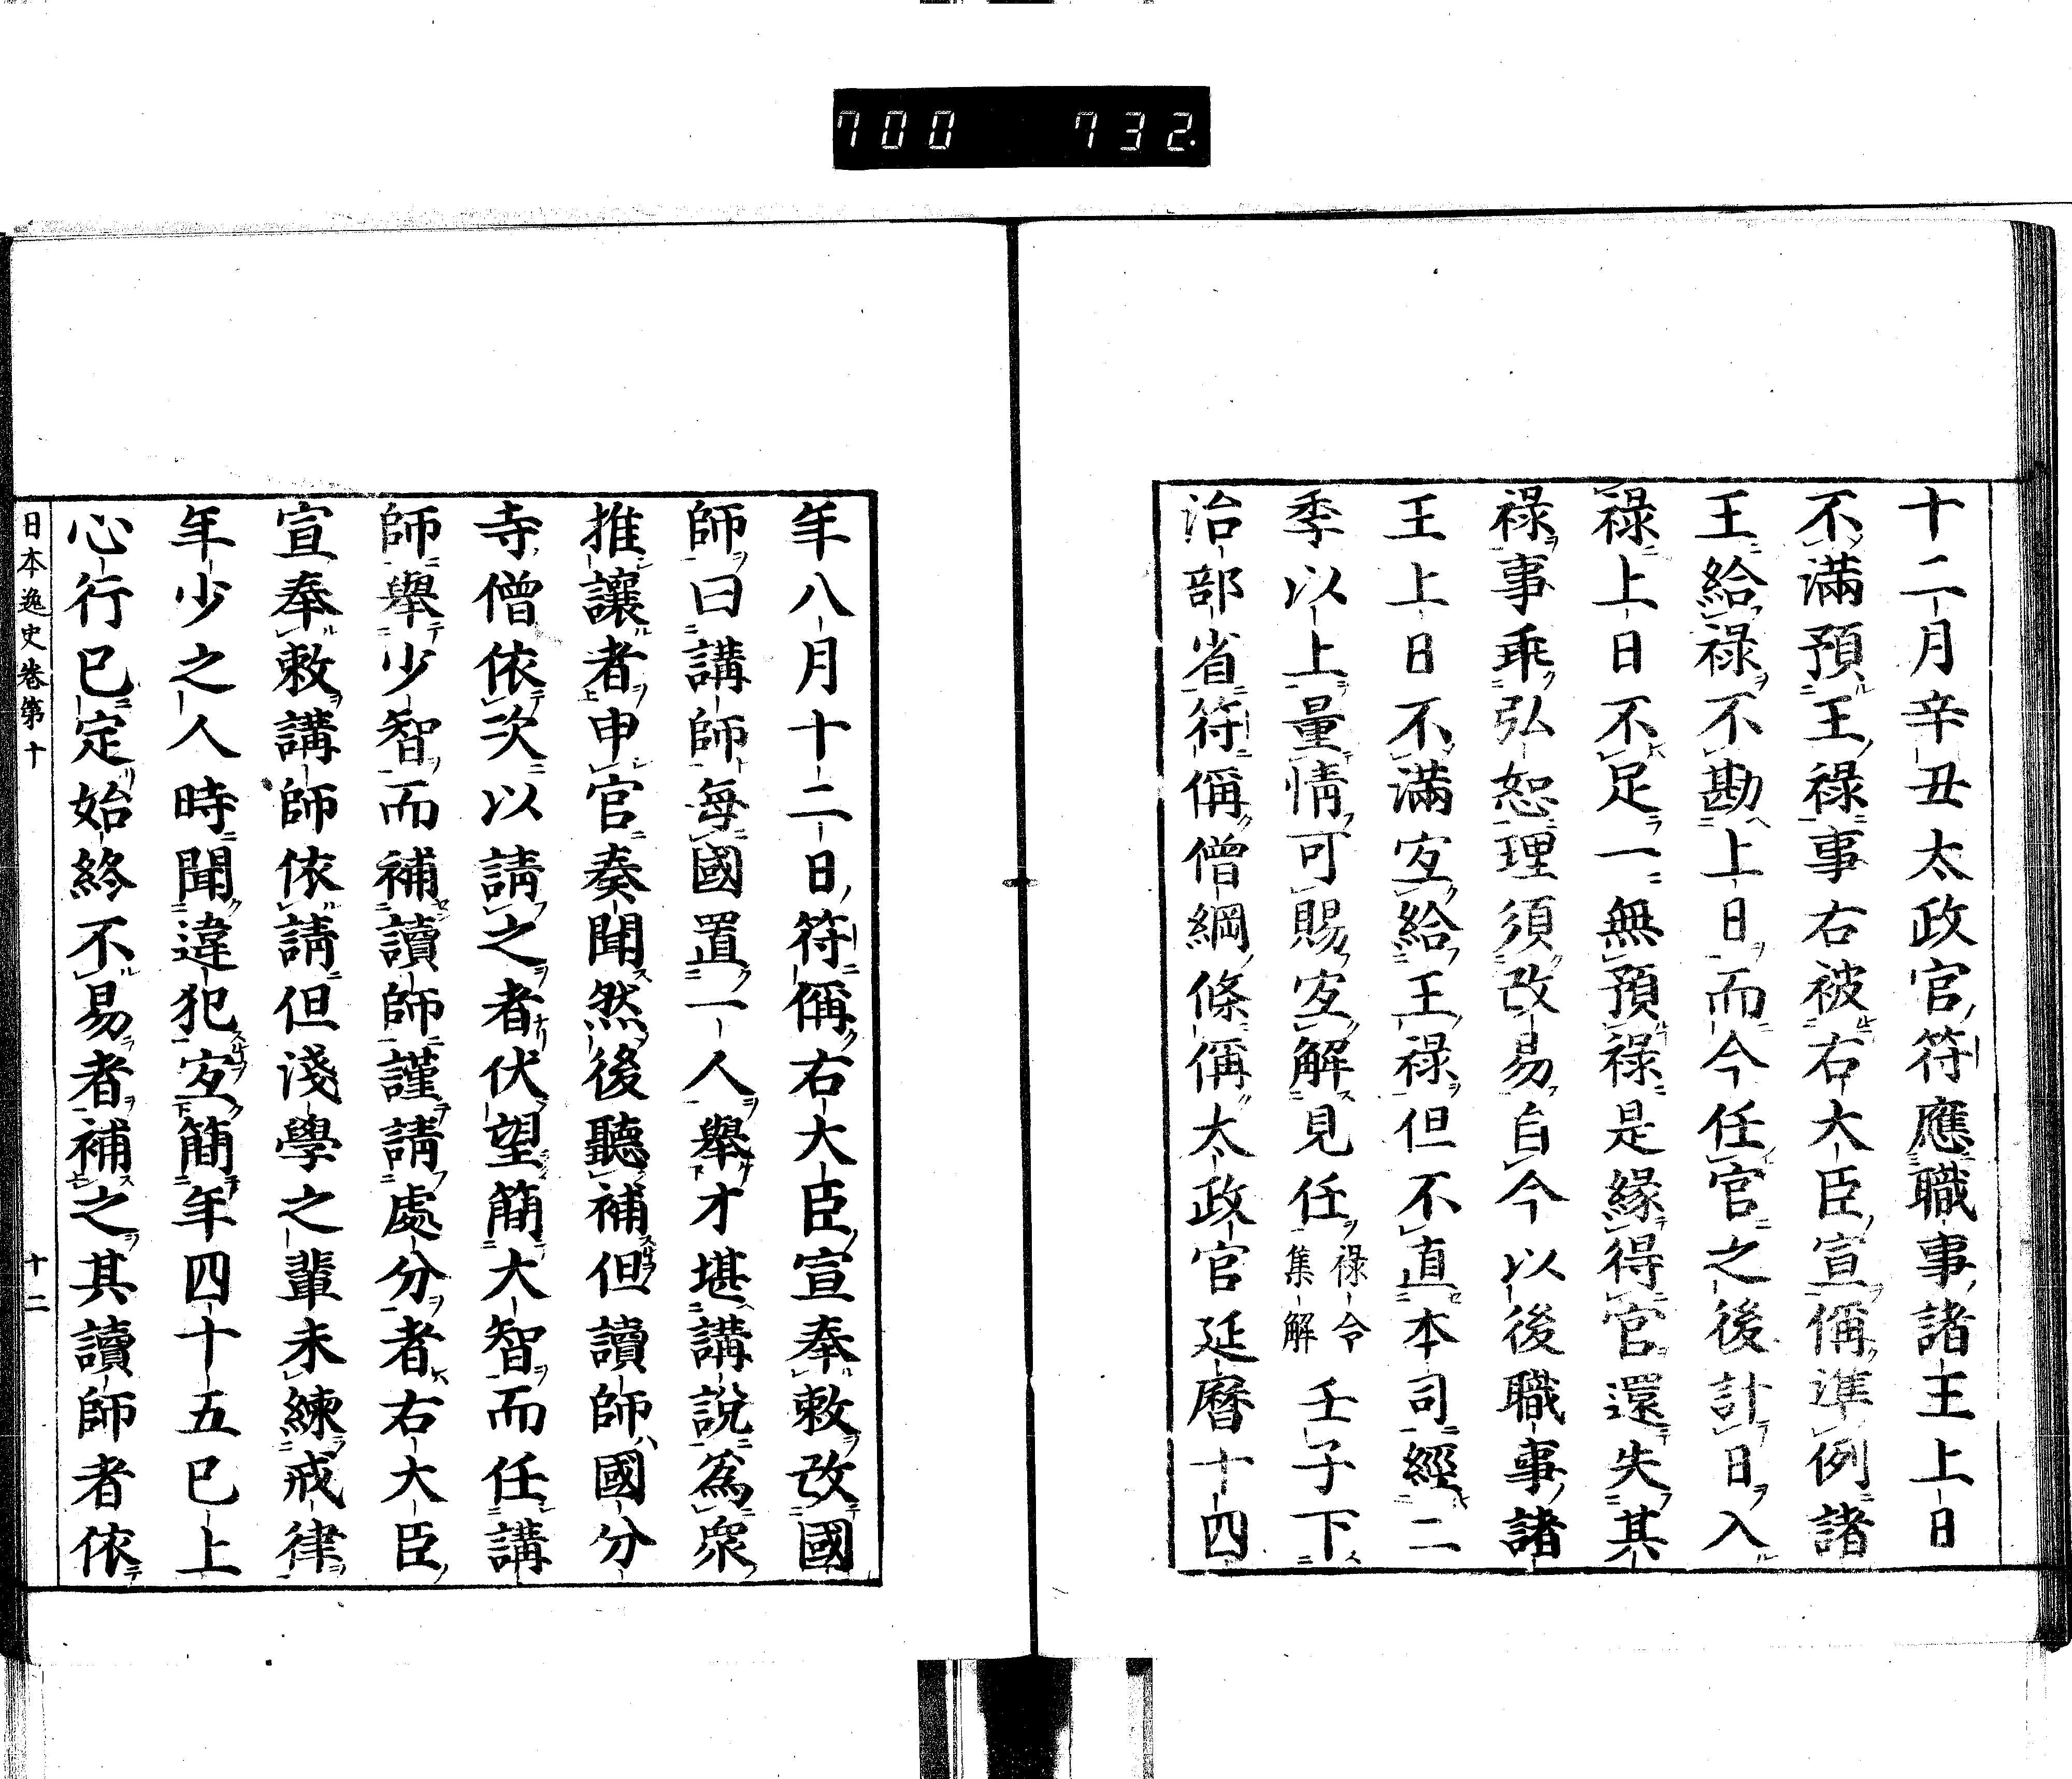 700 732.
十二月辛丑太政官符應職事諸王上日
不滿預王祿事右被右大臣宣偁準例諸
王給祿不勘上日而今任官之後計日入
祿上日不足一無預祿是緣得官還失其
祿事乖弘恕理須改易自今以後職事諸
王上日不滿㝎給王祿但不直本司經二
季以上量情可賜㝎解見任祿令集解壬子下
治部省符偁僧綱條偁太政官延曆十四
年八月十二日符偁右大臣宣奉敕改國
師曰講師每國置一人舉才堪講說爲衆
推讓者申官奏聞然後聽補但讀師國分
寺僧依次以請之者伏望簡大智而任講
師舉少智而補讀師謹請處分者右大臣
宣奉敕講師依請但淺學之輩未練戒律
年少之人時聞違犯㝎簡年四十五已上
心行已定始終不易者補之其讀師者依
日本逸史卷第十 十二